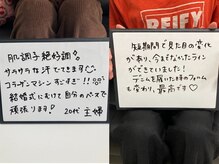 肌調子絶好調♪
サラサラな汗でてきます
コラーゲンマシンすごすぎ!!
結婚式にむけて自分のペースで
頑張ります!
20代 主婦
REIFY
短期間で見た目の変化
があり、今までなかったライン
ができていました!
デニムを履いた時のフォルム
も変わり、最高です